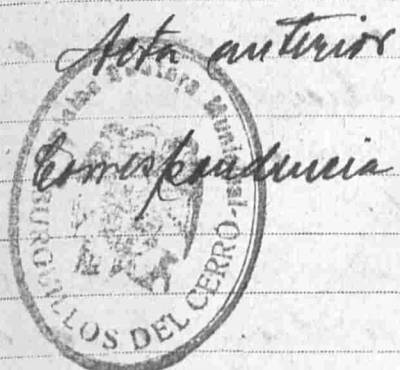 Acta anterior
Correspondencia
BURGUILLOS DEL CERRO